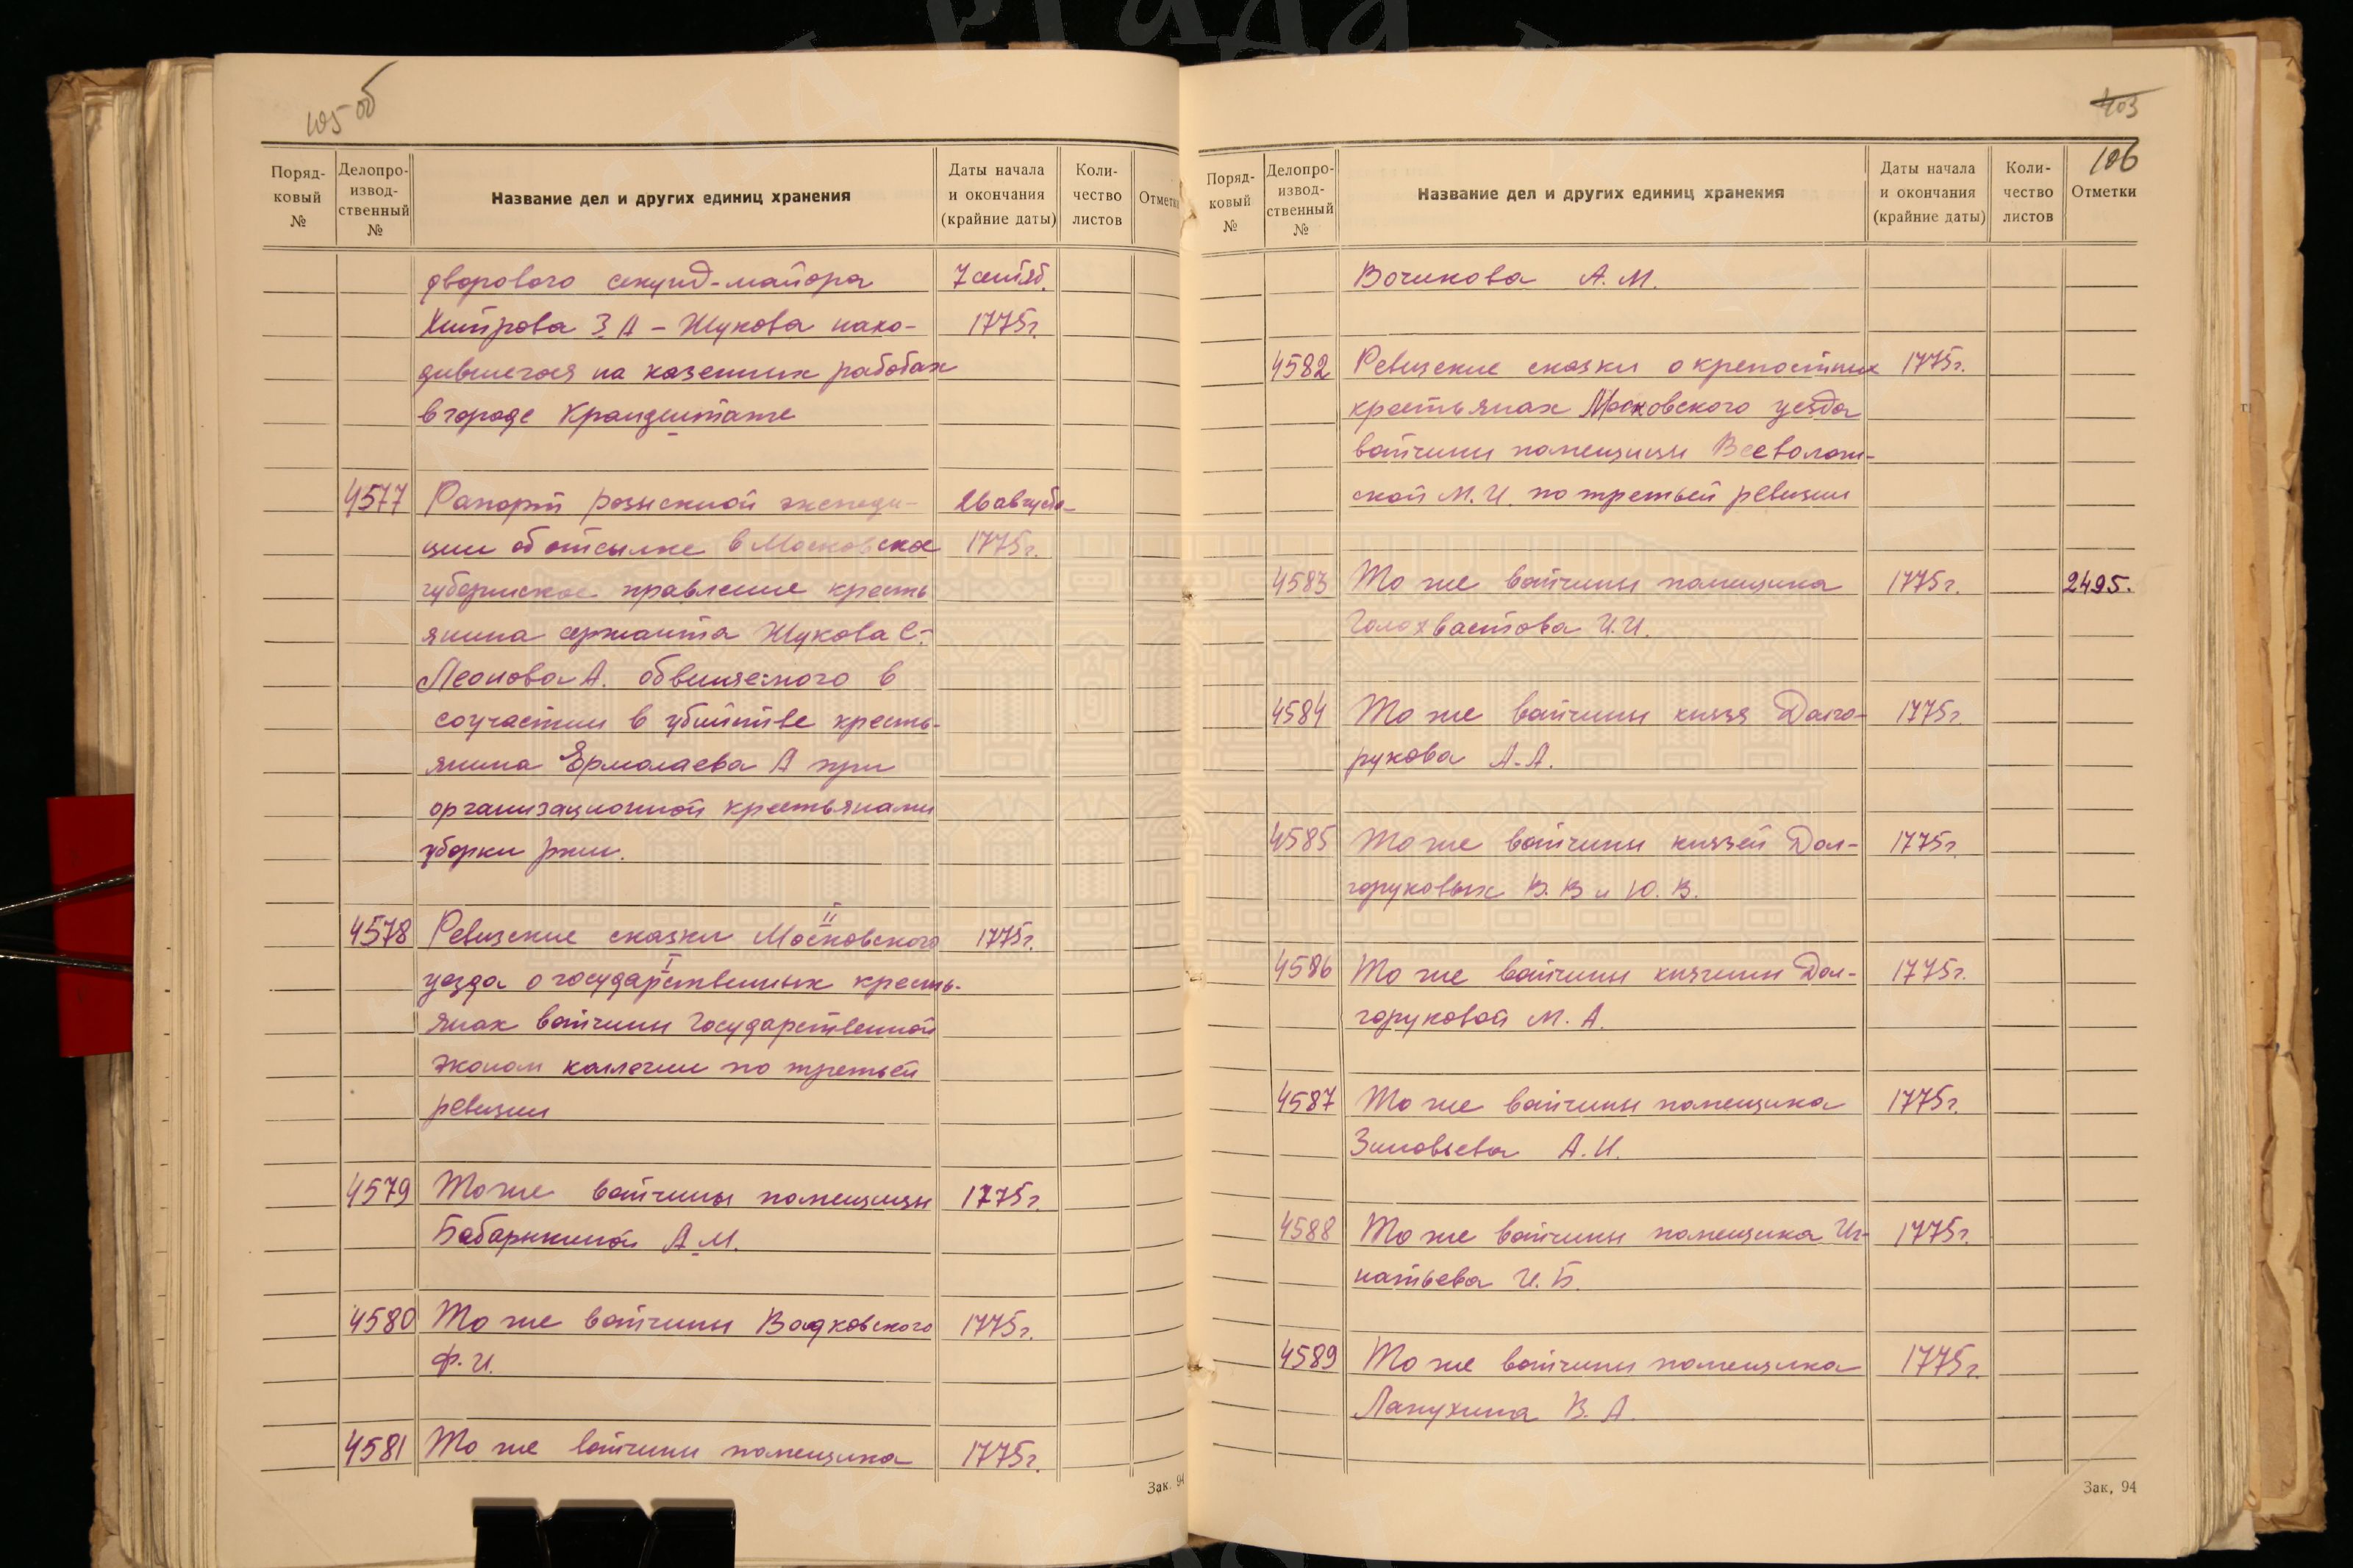 105 об
Поряд-
ковый
№
Делопро-
извод-
ственный
№
Название дел и других единиц хранения
Даты начала
и окончания
(крайние даты)
Коли-
чество
листов
Отметки
дворового секунд-майора 7 сентяб.
Хитрова З А – Жукова нахо- 1775г.
дившегося на казенных работах
в городе Крандштате
4577 Рапорт розыскной экспеди- 26 августа
ции об отсылке в Московское 1775г.
губернское правление кресть
янина сержанта Жукова С.-
Леонова А. обвиняемого в
соучастии в убийстве кресть-
янина Ермолаева А при
организационной крестьянами
уборки ржи.
4578 Ревизские сказки Московского 1775г.
уезда о государственных кресть-
янах вотчины Государственной
эконом коллегии по третьей
ревизии
4579 То же вотчины помещицы 1775г.
Бабарыкиной А.М.
4580 То же вотчины Вадковского 1775г.
Ф.И.
4581 То же вотчины помещика 1775г.
Зак. 94
403
106
Поряд-
ковый
№
Делопро-
извод-
ственный
№
Название дел и других единиц хранения
Даты начала
и окончания
(крайние даты)
Коли-
чество
листов
Отметки
Вочикова А.М.
4582 Ревизские сказки о крепостных 1775г.
крестьянах Московского уезда
вотчины помещицы Всеволож-
ской М.И. по третьей ревизии
4583 То же вотчины помещика 1775г. 2495.
Голохвастова И.И.
4584 То же вотчины князя Долго- 1775г.
рукова А.А.
4585 То же вотчины князей Дол- 1775г.
горуковых В.В и Ю.В.
4586 То же вотчины княгини Дол- 1775г.
горуковой М.А.
4587 То же вотчины помещика 1775г.
Зиновьева А.И.
4588 То же вотчины помещика Иг- 1775г.
натьева И.Б.
4589 То же вотчины помещика 1775г.
Лапухина В.А.
Зак, 94